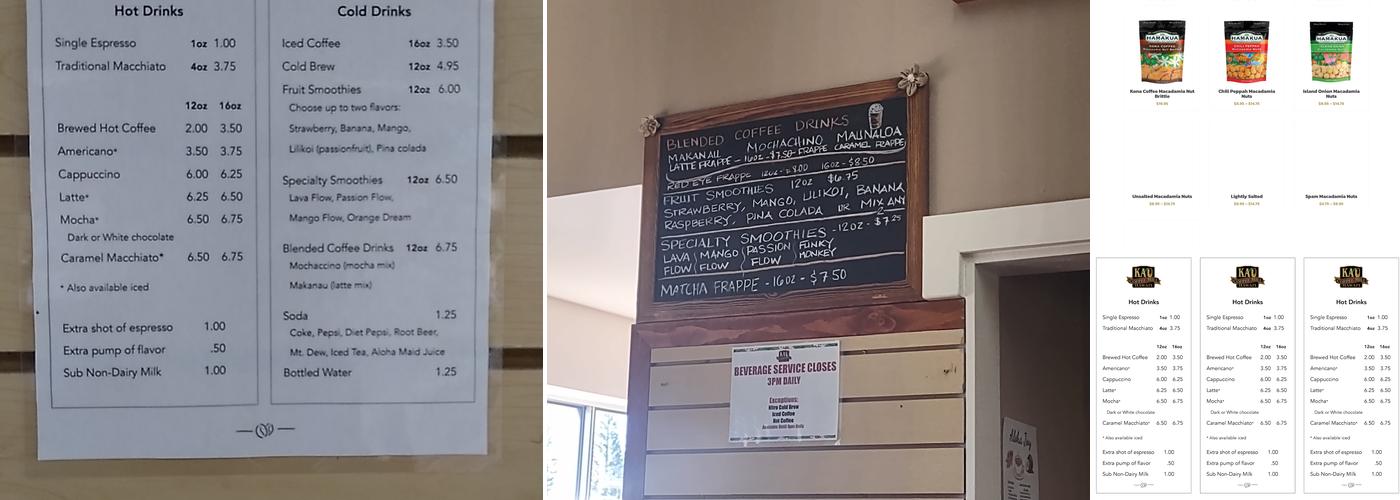 Hot Drinks
Single Espresso 1oz 1.00
Traditional Macchiato 4oz 3.75
12oz 16oz
Brewed Hot Coffee 2.00 3.50
Americano* 3.50 3.75
Cappuccino 6.00 6.25
Latte* 6.25 6.50
Mocha* 6.50 6.75
Dark or White chocolate
Caramel Macchiato* 6.50 6.75
* Also available iced
Extra shot of espresso 1.00
Extra pump of flavor .50
Sub Non-Dairy Milk 1.00
Cold Drinks
Iced Coffee 16oz 3.50
Cold Brew 12oz 4.95
Fruit Smoothies 12oz 6.00
Choose up to two flavors:
Strawberry, Banana, Mango,
Lilikoi (passionfruit), Pina colada
Specialty Smoothies 12oz 6.50
Lava Flow, Passion Flow,
Mango Flow, Orange Dream
Blended Coffee Drinks 12oz 6.75
Mochaccino (mocha mix)
Makanau (latte mix)
Soda 1.25
Coke, Pepsi, Diet Pepsi, Root Beer,
Mt. Dew, Iced Tea, Aloha Maid Juice
Bottled Water 1.25
BLENDED COFFEE DRINKS
MAKANAU MOCHACHINO MAUNALOA
LATTE FRAPPE - 16oz - $7.50 - FRAPPE CARAMEL FRAPPE
RED EYE FRAPPE 12oz - 8.00 16oz - $8.50
FRUIT SMOOTHIES 12oz $6.75
STRAWBERRY, MANGO, LILIKOI, BANANA
RASPBERRY, PINA COLADA OR MIX ANY
2
SPECIALTY SMOOTHIES - 12oz - $7.25
LAVA MANGO PASSION FUNKY
FLOW FLOW FLOW MONKEY
MATCHA FRAPPE - 16oz - $7.50
BEVERAGE SERVICE CLOSES
3PM DAILY
Exceptions:
Nitro Cold Brew
Iced Coffee
Hot Coffee
Available Until 5pm Daily
Aloha Joy
HAMAKUA
HAMAKUA
HAMAKUA
Kona Coffee Macadamia Nut
Brittle
Chili Peppah Macadamia
Nuts
Island Onion Macadamia
Nuts
Unsalted Macadamia Nuts
Lightly Salted
Spam Macadamia Nuts
KA'U
COFFEE MILL
HAWAI'I
Hot Drinks
Single Espresso 1oz 1.00
Traditional Macchiato 4oz 3.75
12oz 16oz
Brewed Hot Coffee 2.00 3.50
Americano* 3.50 3.75
Cappuccino 6.00 6.25
Latte* 6.25 6.50
Mocha* 6.50 6.75
Dark or White chocolate
Caramel Macchiato* 6.50 6.75
* Also available iced
Extra shot of espresso 1.00
Extra pump of flavor .50
Sub Non-Dairy Milk 1.00
KA'U
COFFEE MILL
HAWAI'I
Hot Drinks
Single Espresso 1oz 1.00
Traditional Macchiato 4oz 3.75
12oz 16oz
Brewed Hot Coffee 2.00 3.50
Americano* 3.50 3.75
Cappuccino 6.00 6.25
Latte* 6.25 6.50
Mocha* 6.50 6.75
Dark or White chocolate
Caramel Macchiato* 6.50 6.75
* Also available iced
Extra shot of espresso 1.00
Extra pump of flavor .50
Sub Non-Dairy Milk 1.00
KA'U
COFFEE MILL
HAWAI'I
Hot Drinks
Single Espresso 1oz 1.00
Traditional Macchiato 4oz 3.75
12oz 16oz
Brewed Hot Coffee 2.00 3.50
Americano* 3.50 3.75
Cappuccino 6.00 6.25
Latte* 6.25 6.50
Mocha* 6.50 6.75
Dark or White chocolate
Caramel Macchiato* 6.50 6.75
* Also available iced
Extra shot of espresso 1.00
Extra pump of flavor .50
Sub Non-Dairy Milk 1.00